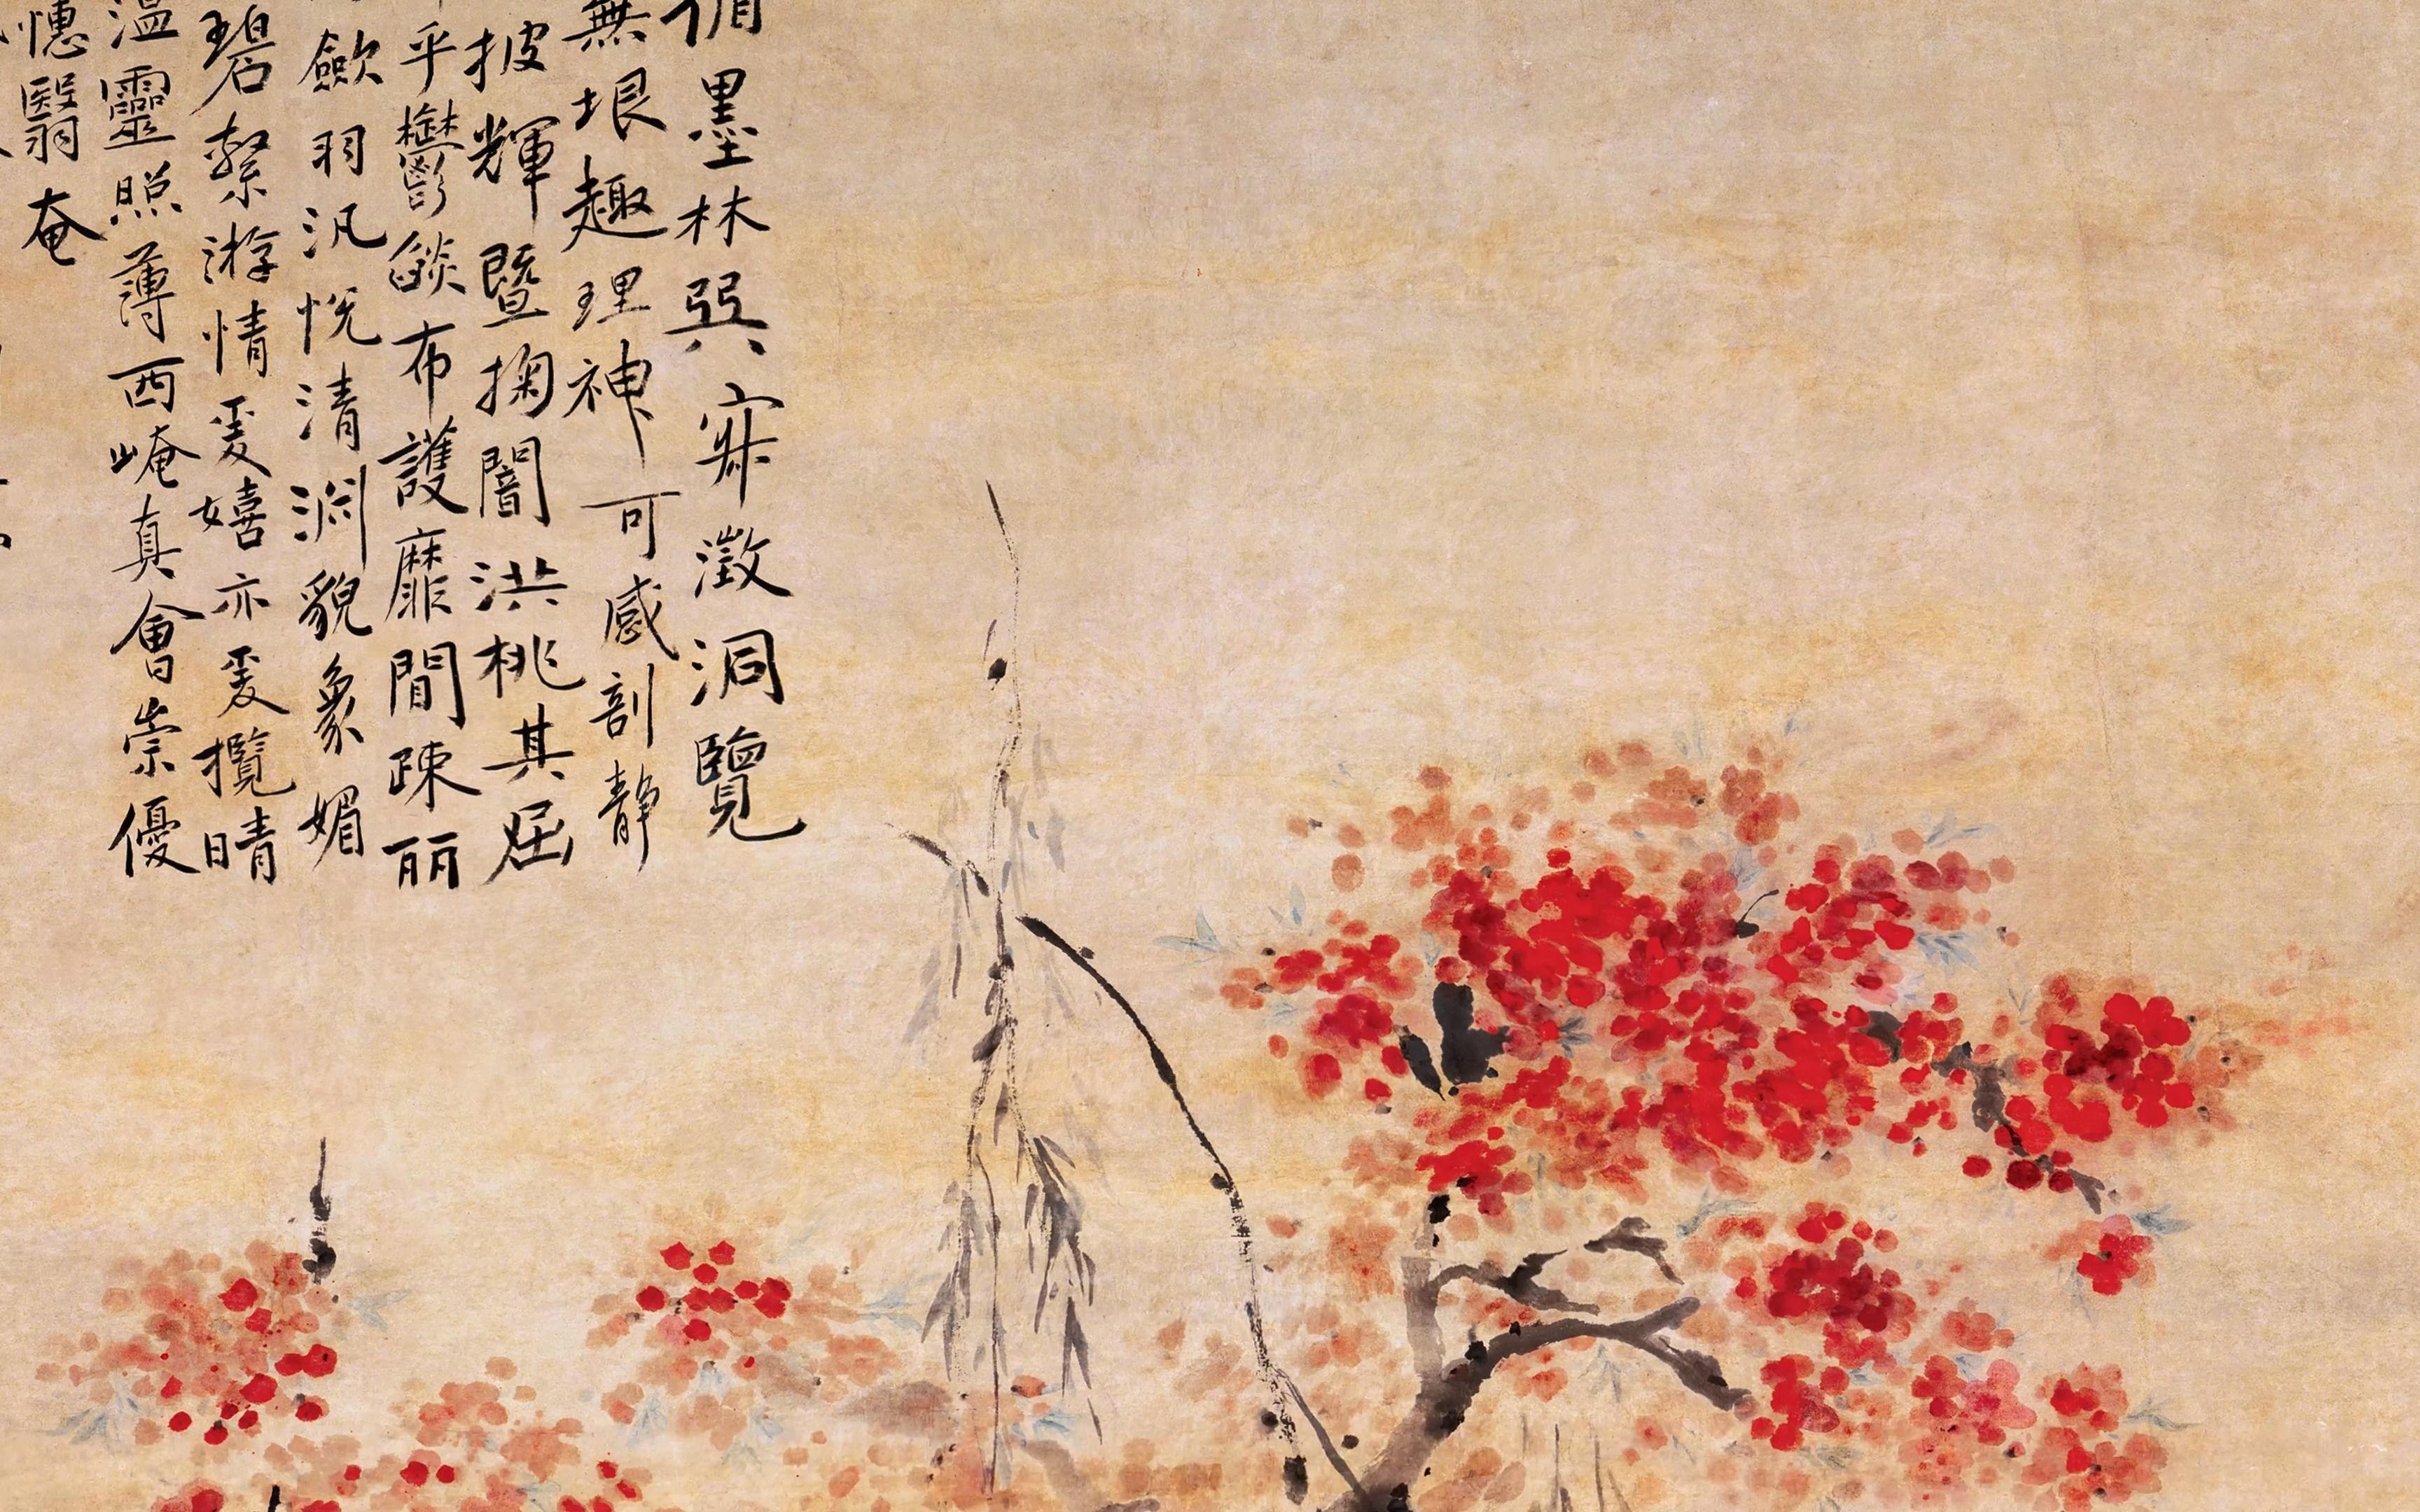 墨林㢲寀澂洞覽
無垠趣理神可感剖靜
披輝暨掬闇洪桃其屈
乎鬱燄布護靡間疎丽
歛羽汎悅清渊貌象媚
碧繄游情爰嬉亦爰攬晴
溫靈照薄西崦真會崇優
憓翳奄